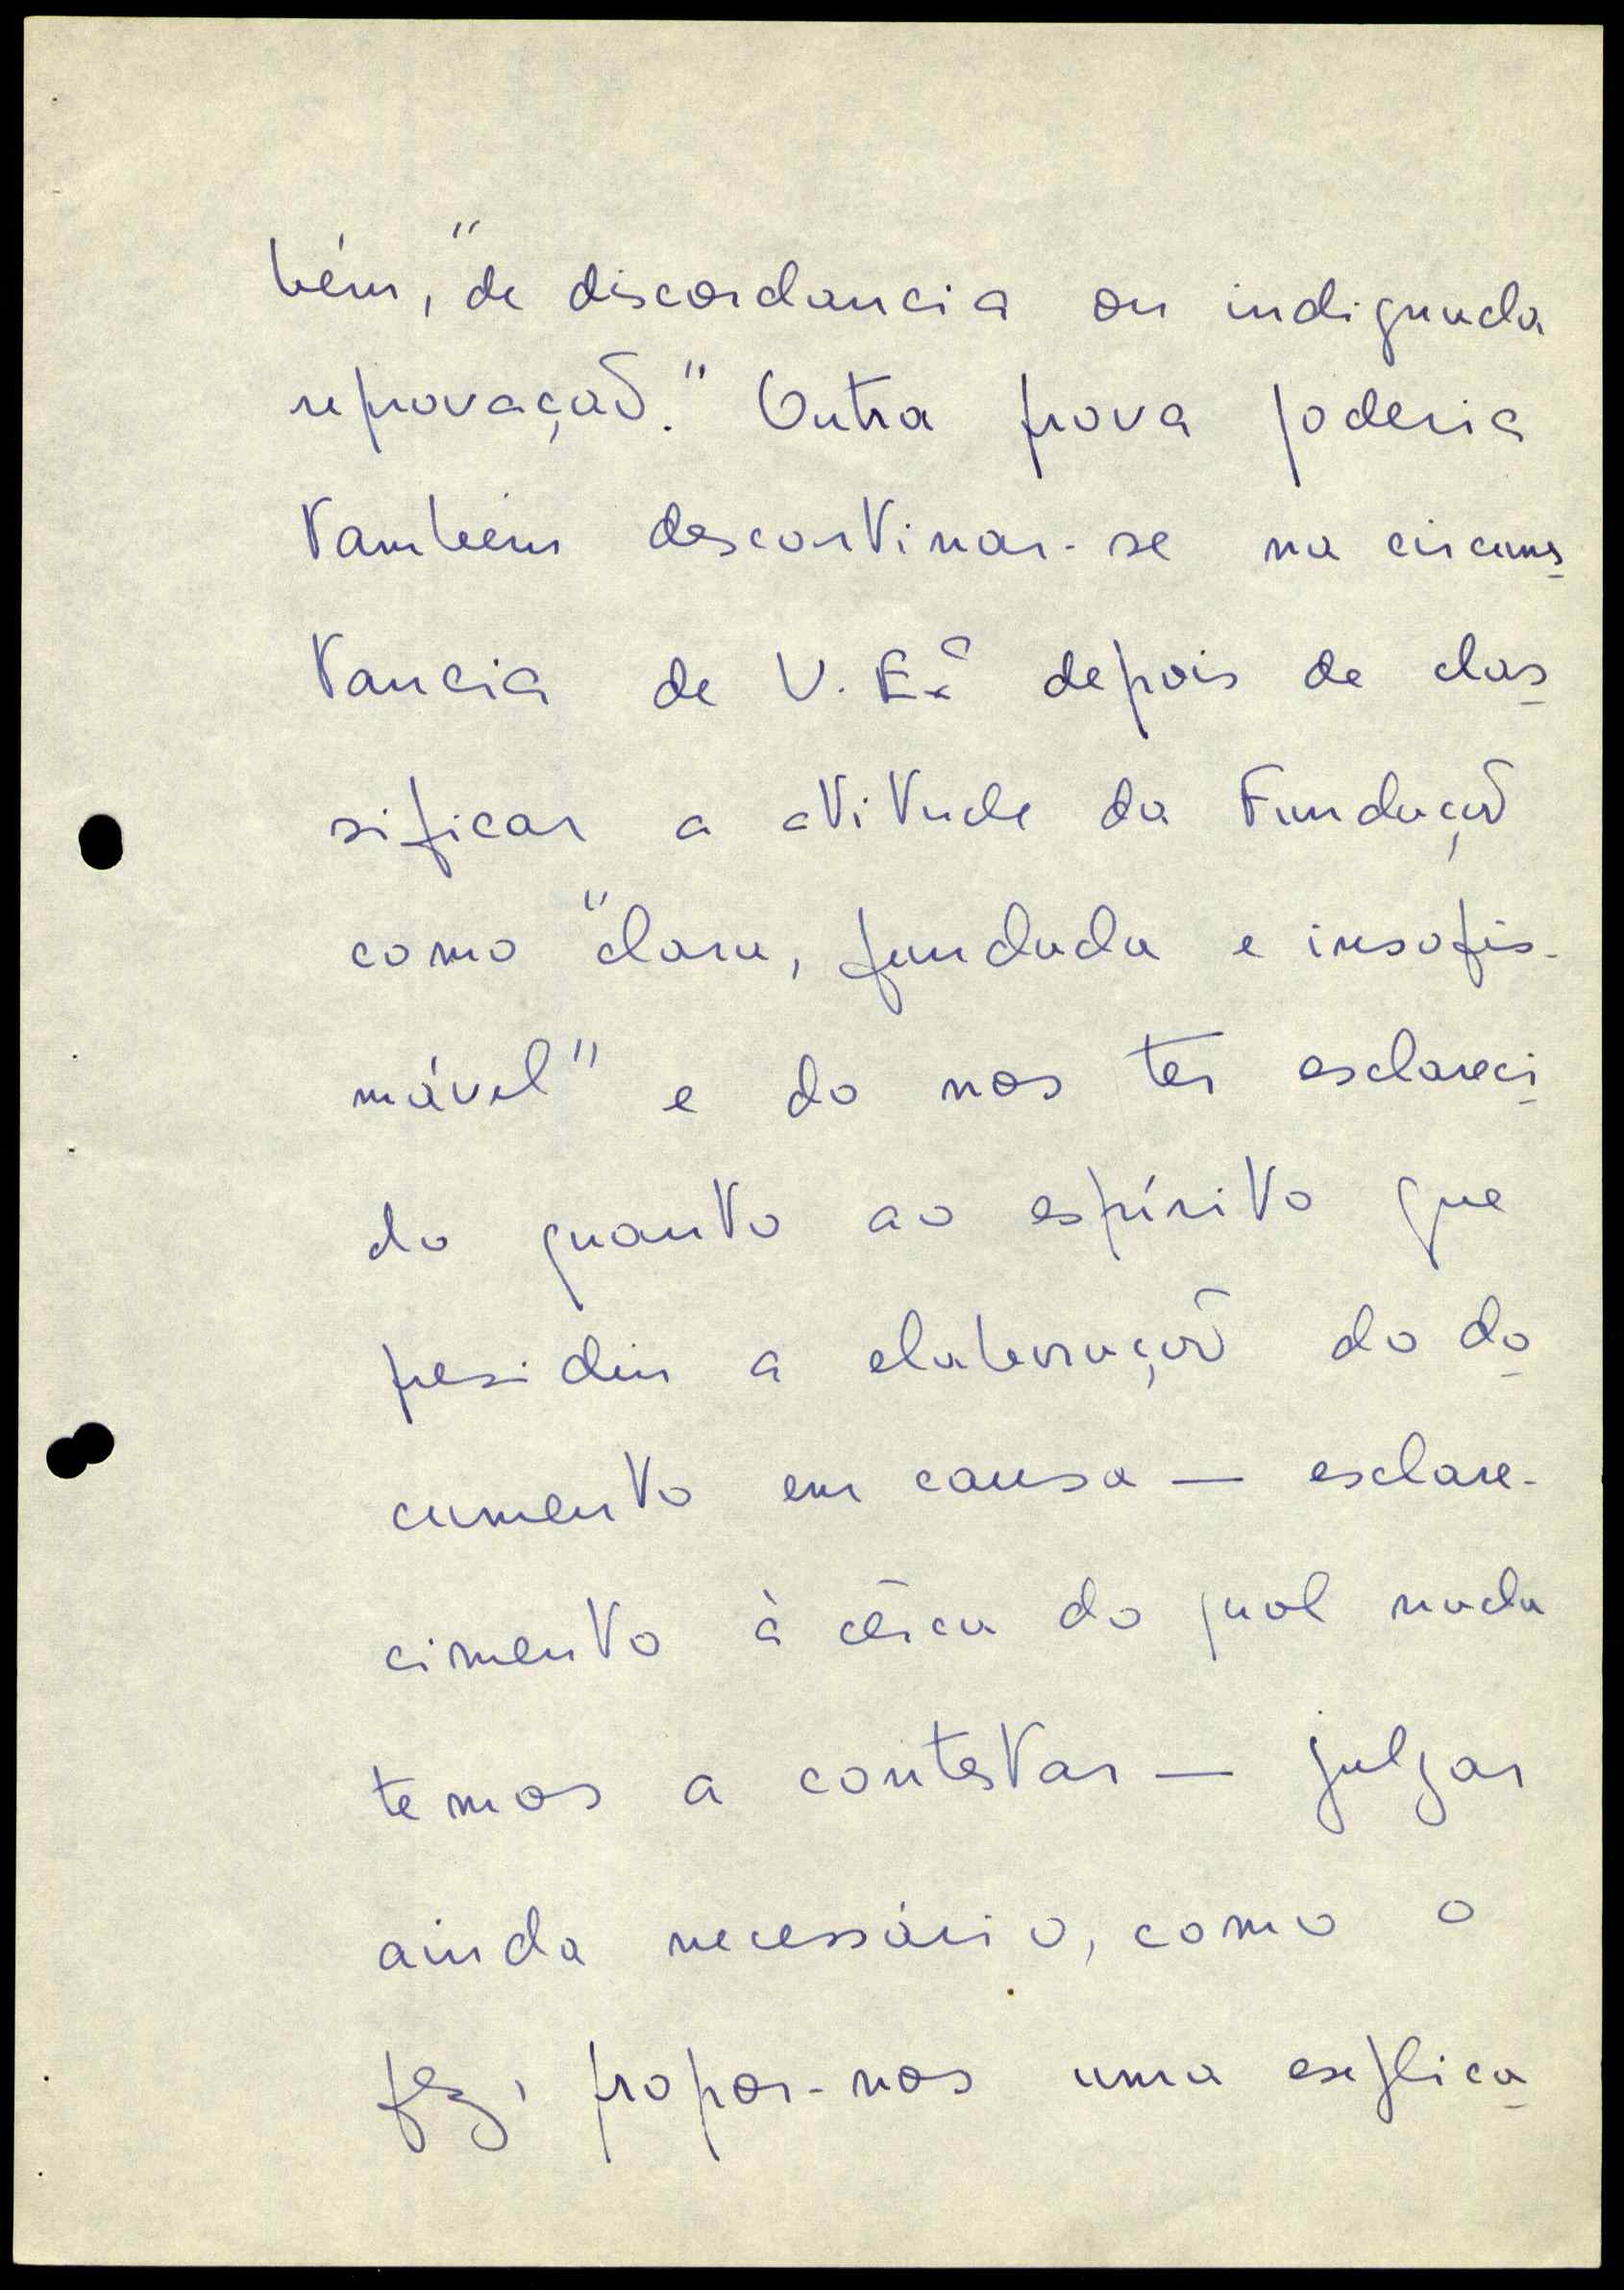 bém, "de discordancia ou indignada
reprovação." Outra prova poderia
também descortinar-se na circuns
tancia de V. Exª depois de clas
sificar a atitude da Fundação
como "clara, fundada e insofis-
mável" e do nos ter esclareci
do quanto ao espírito que
presidiu a elaboração do do
cumento em causa — esclare-
cimento à cêrca do qual nada
temos a contestar — julgar
ainda necessário, como o
fez, propor-nos uma explica